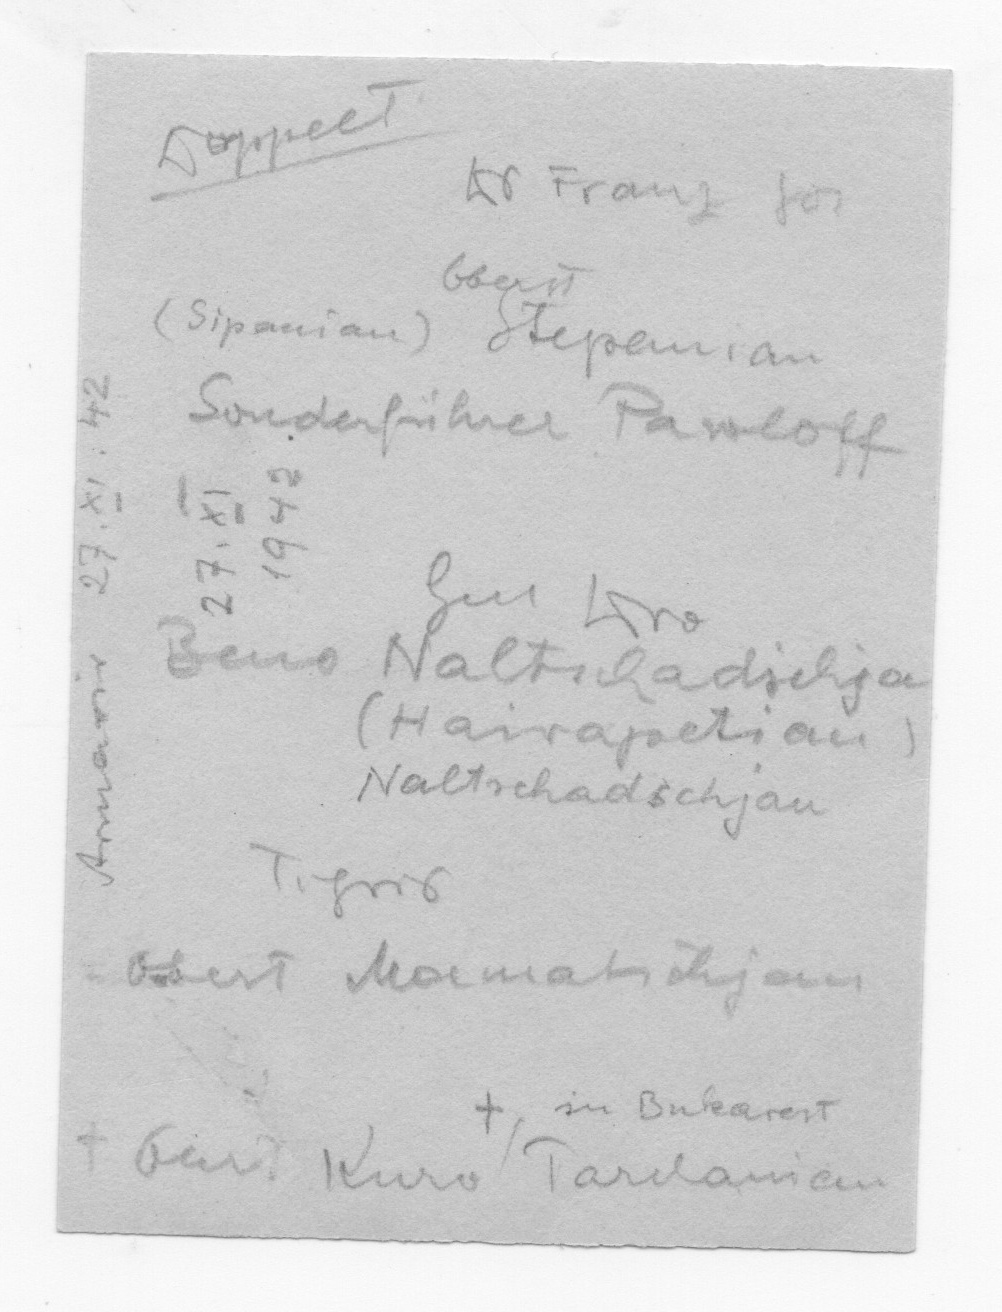 Doppelt
Dr Franz Jos
Oberst
(Sipanian) Stepanian
Sonderführer Pawloff
27.XI.42
27.XI
1942
Gen Dro
Beno Naltschadschja
(Hairapetian)
Naltschadschjan
Tigris
Oberst
+, in Bukarest
+ Gen. Kuro Tarchanian